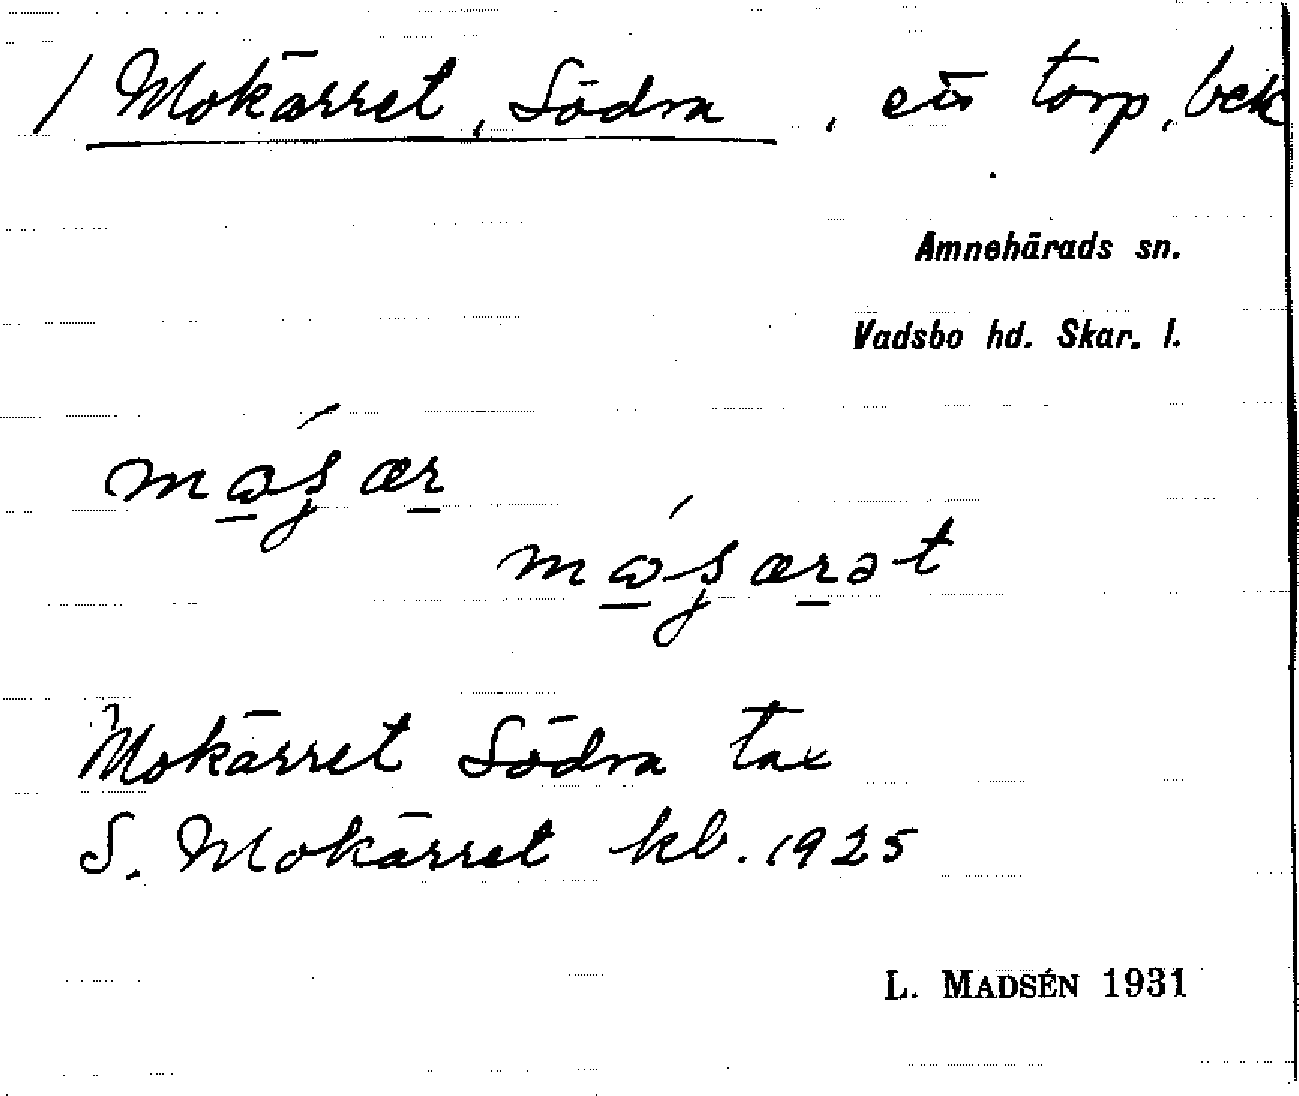 / Mokärret, Södra, ett torp, bek
Amnehärads sn.
Vadsbo hd. Skar. l.
Mokärret Södra tax
S. Mokärret kb. 1925
L. MADSÉN 1931